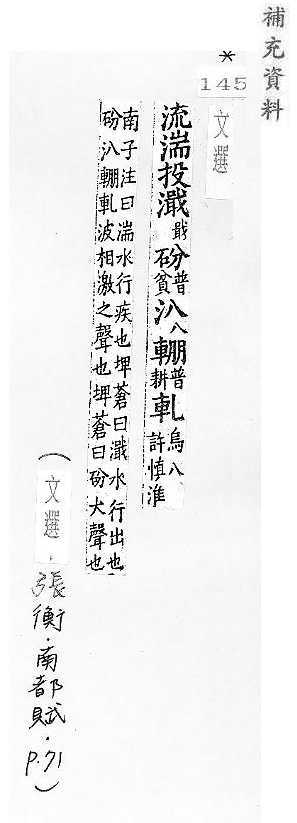 補充資料
*
145
文選
流湍投濈戢砏普貧汃八輣普耕軋烏八許慎淮
南子注曰湍水行疾也埤蒼曰濈水行出也
砏汃輣軋波相激之聲也埤蒼曰砏大聲也
(文選.張衡.南都賦.P.71)